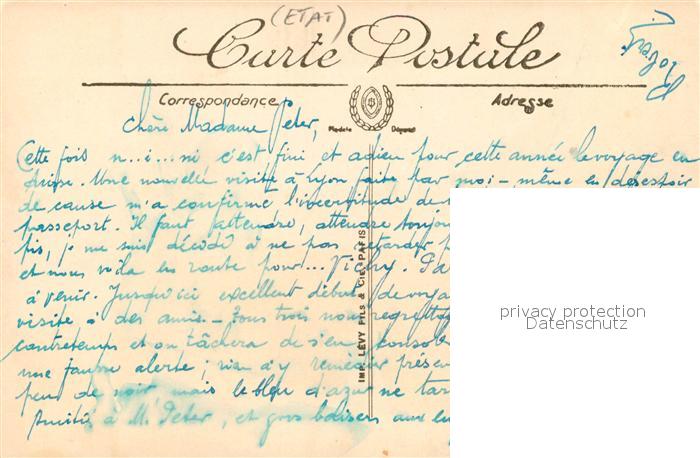 (ETAT)
Carte Postale
Correspondance
Adresse
Modèle Déposé
Chère Madame Peter,
Cette fois n..i...ni c'est fini et adieu pour cette année le voyage en
Suisse. Une nouvelle visite à Lyon faite par moi-même en désespoir
de cause m'a confirmé l'incertitude de
passeport. Il faut attendre, attendre toujou
pis, je me suis décidé à ne pas retarder
et nous voilà en route pour... Vichy.
à venir. Jusqu'ici excellent début de voya
visite à des amis - Tous trois nous regretto
contretemps et on tâchera de s'en conso
une fausse alerte; rien à y remédier prése
peu de noir mais le bleu d'azur ne tar
Amitiés à M. Peter, et gros baisers aux
IMP. LÉVY FILS & Cie PARIS
privacy protection
Datenschutz